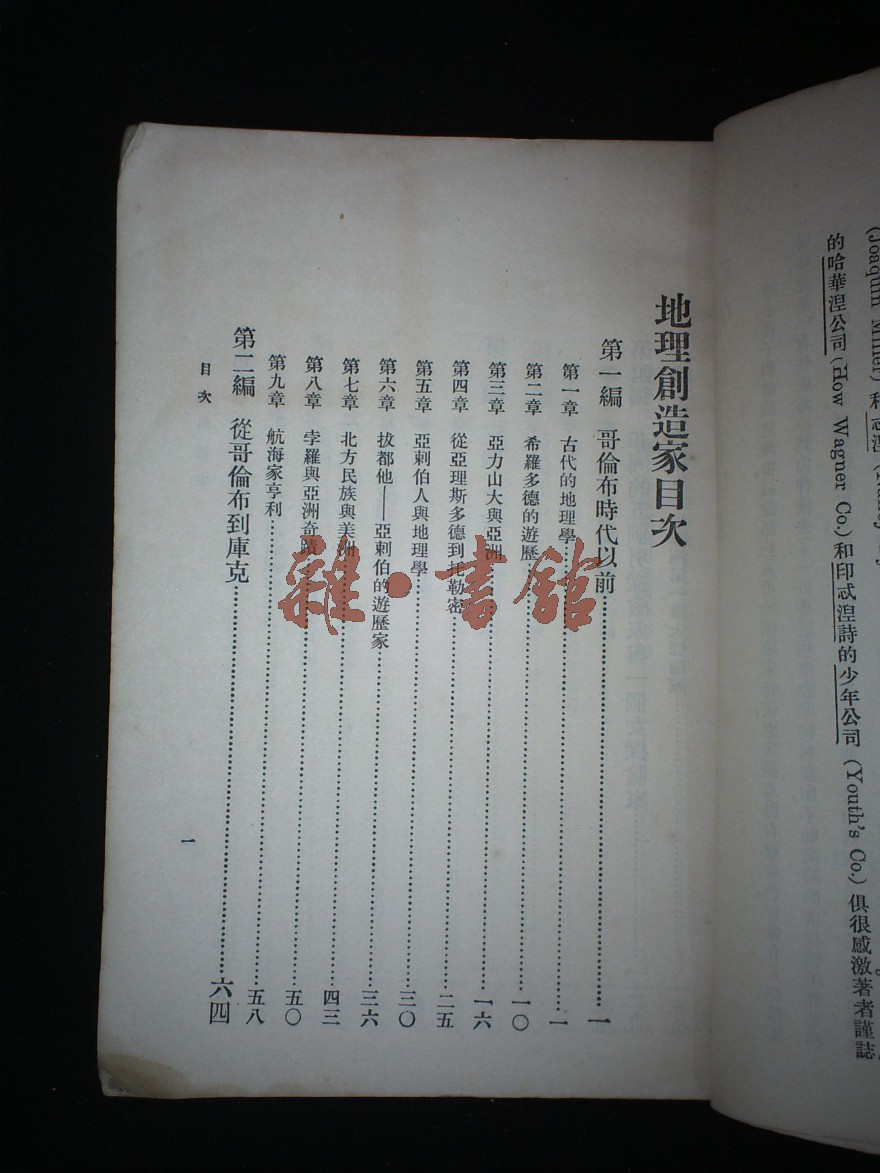 (Joaquin Miller) 和
的哈華湼公司 (How Wagner Co.) 和印忒湼詩的少年公司 (Youth's Co.) 俱很感激著者謹誌
地理創造家目次
第一編 哥倫布時代以前……一
第一章 古代的地理學……一
第二章 希羅多德的遊歷……一〇
第三章 亞力山大與亞洲……一六
第四章 從亞理斯多德到托勒密……二五
第五章 亞剌伯人與地理學……三〇
第六章 拔都他——亞剌伯的遊歷家……三六
第七章 北方民族與美洲……四三
第八章 孛羅與亞洲奇蹟……五〇
第九章 航海家亨利……五八
第二編 從哥倫布到庫克……六四
目次
一
雜·書館